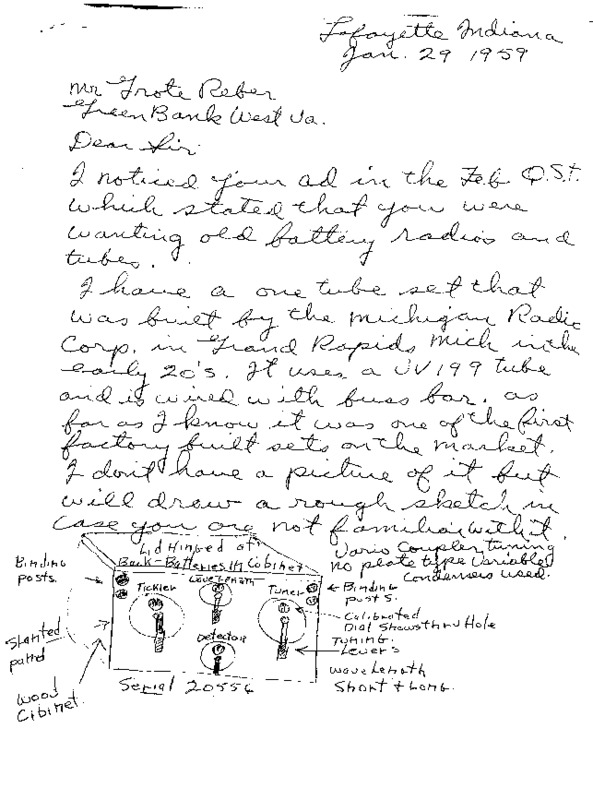 Lafayette Indiana
Jan. 29 1959
Mr Grote Reber
Green Bank West Va.
Dear Sir
I noticed your ad in the Feb Q.S.T.
which stated that you were
wanting old battery radios and
tubes.
I have a one tube set that
was built by the Michigan Radio
Corp. in Grand Rapids Mich in the
early 20's. It uses a UV199 tube
and is wired with buss bar. as
far as I know it was one of the first
factory built sets on the market.
I don't have a picture of it but
will draw a rough sketch in
case you are not familiar with it.
Lid Hinged at
Back-Batteries In Cobinet
Vario Coupler tuning
no plate type Variable
Condensers used.
Binding
posts.
Tickler
Wavelength
Tuner
Binding
posts.
Calibrated
Dial Shows thru Hole
Slanted
panel
Detector
Tuning
Lever's
Wood
Cibinet.
Wavelength
Short & Long.
Serial 20556